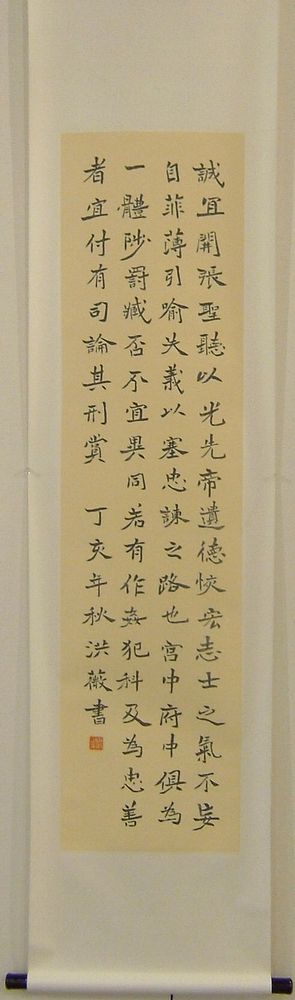 誠宜開張聖聽以光先帝遺德恢宏志士之氣不妄
自菲薄引喻失義以塞忠諫之路也宮中府中俱為
一體陟罰臧否不宜異同若有作姦犯科及為忠善
者宜付有司論其刑賞 丁亥年秋洪薇書